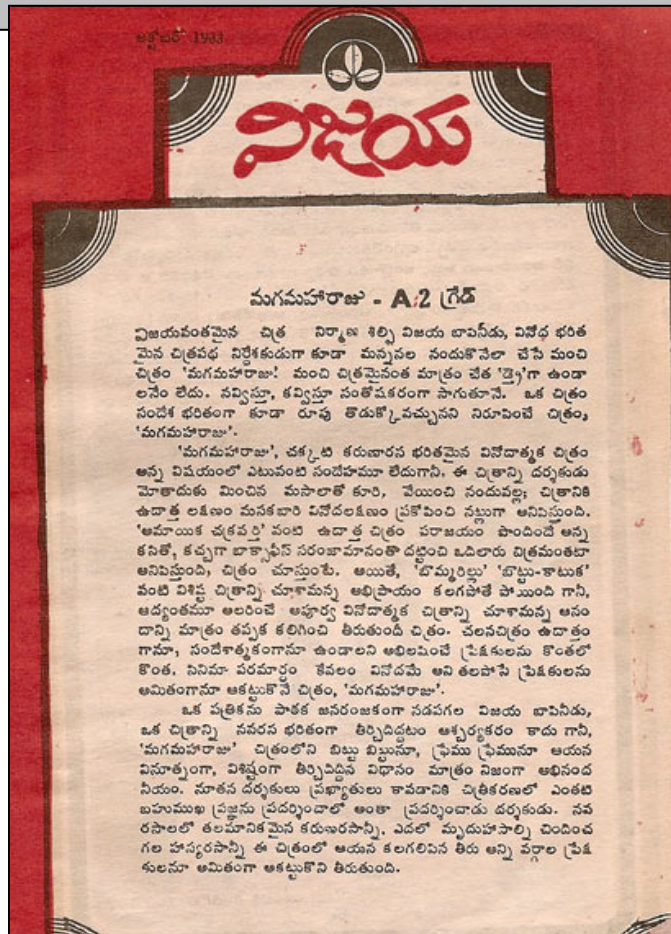 అక్టోబరో 1983
విజయ
మగమహారాజు - A.2 గ్రేడ్
విజయవంతమైన చిత్ర నిర్మాణ శిల్పి విజయ బాపినీడు, వినోధ భరిత
మైన చిత్రపధ నిర్దేశకుడుగా కూడా మన్ననల నందుకొనేలా చేసే మంచి
చిత్రం 'మగమహారాజు! మంచి చిత్రమైనంత మాత్రం చేత 'డ్రై'గా ఉండా
లనేం లేదు. నవ్విస్తూ, కవ్విస్తూ సంతోషకరంగా సాగుతూనే. ఒక చిత్రం
సందేశ భరితంగా కూడా రూపు తొడుక్కోవచ్చునని నిరూపించే చిత్రం,
'మగమహారాజు'.
'మగమహారాజు', చక్కటి కరుణారస భరితమైన వినోదాత్మక చిత్రం
అన్న విషయంలో ఎటువంటి సందేహమూ లేదుగానీ. ఈ చిత్రాన్ని దర్శకుడు
మోతాదుకు మించిన మసాలాతో కూరి, వేయించి నందువల్ల; చిత్రానికి
ఉదాత్త లక్షణం మసకబారి వినోదలక్షణం ప్రకోపించి నట్లుగా అనిపిస్తుంది.
'అమాయిక చక్రవర్తి' వంటి ఉదాత్త చిత్రం పరాజయం పొందిందే అన్న
కసితో, కచ్చగా బాక్సాఫీస్ సరంజామానంతా దట్టించి ఒదిలారు చిత్రమంతటా
అనిపిస్తుంది, చిత్రం చూస్తుంటే. అయితే, 'బొమ్మరిల్లు' 'బొట్టు-కాటుక'
వంటి విశిష్ట చిత్రాన్ని చూశామన్న అభిప్రాయం కలగపోతే పోయింది గానీ,
ఆద్యంతమూ అలరించే అపూర్వ వినోదాత్మక చిత్రాన్ని చూశామన్న ఆనం
దాన్ని మాత్రం తప్పక కలిగించి తీరుతుందీ చిత్రం. చలనచిత్రం ఉదాత్తం
గామా, సందేశాత్మకంగానూ ఉండాలని అభిలషించే ప్రేక్షకులను కొంతలో
కొంత. సినిమా పరమార్థం కేవలం వినోదమే అని తలపోసే ప్రేక్షకులను
అమితంగానూ ఆకట్టుకొనే చిత్రం, 'మగమహారాజు'.
ఒక పత్రికను పాఠక జనరంజకంగా నడపగల విజయ బాపినీడు,
ఒక చిత్రాన్ని నవరస భరితంగా తీర్చిదిద్దటం ఆశ్చర్యకరం కాదు గానీ,
'మగమహారాజు' చిత్రంలోని బిట్టు బిట్టునూ, ఫ్రేము ఫ్రేమునూ ఆయన
వినూత్నంగా, విశిష్టంగా తీర్చిదిద్దిన విధానం మాత్రం నిజంగా అభినంద
నీయం. నూతన దర్శకులు ప్రఖ్యాతులు కావడానికి చిత్రీకరణలో ఎంతటి
బహుముఖ ప్రజ్ఞను ప్రదర్శించాలో అంతా ప్రదర్శించాడు దర్శకుడు. నవ
రసాలలో తలమానికమైన కరుణరసాన్నీ, ఎదలో మృదుహాసాల్ని చిందించ
గల హాస్యరసాన్నీ ఈ చిత్రంలో ఆయన కలగలిపిన తీరు అన్ని వర్గాల ప్రేక్ష
కులనూ అమితంగా ఆకట్టుకొని తీరుతుంది.